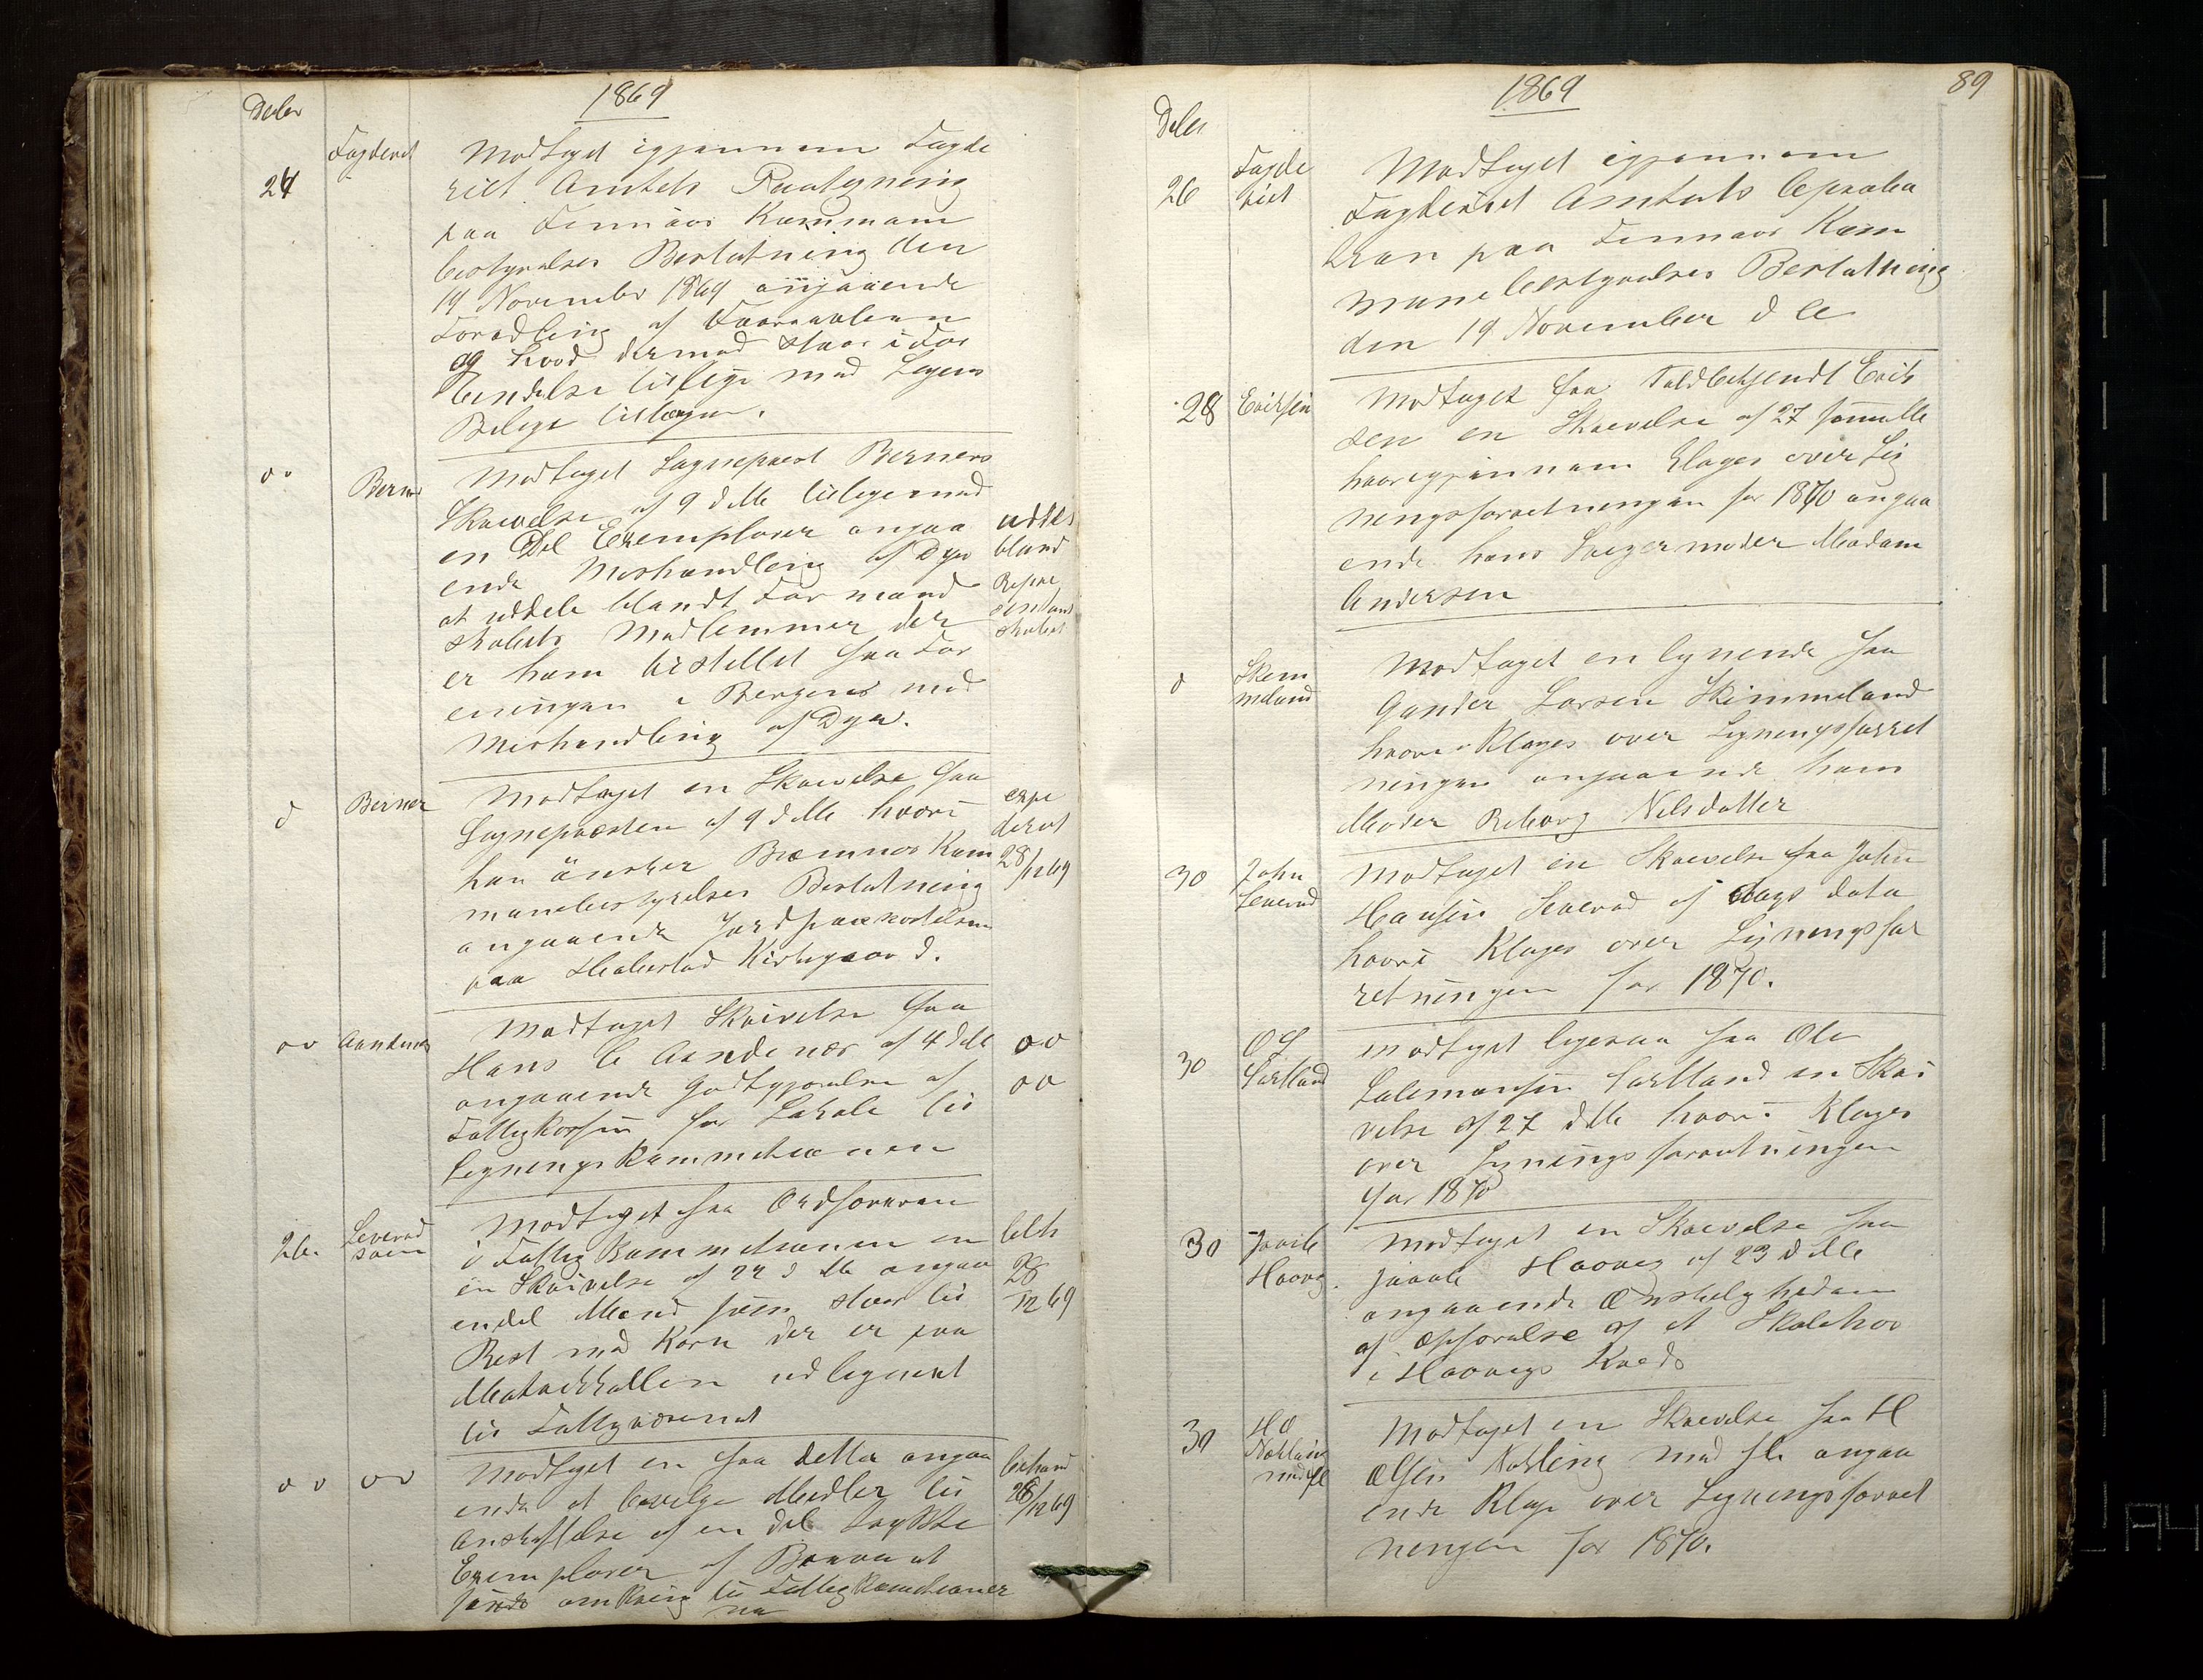 1869
Decbr
24
Fogderiet
Modtaget igjennem Fogde
riet Amtets Paategning
paa Finnaas Kommune
bestyrelses Beslutning den
19 November 1869 angaaende
Foradling af Faareavlen
og hvad dermed staar i For
bindelse tillige med Sagens
Bilage tillagen.
do
Berner
Modtaget Sognepræst Berners
Skrivelse af 9 dette tilligemed
en Del Exemplarer angaa
ende Mishandling af Dyr
at uddele blandt Formand
skabets Medlemmer der
er ham tilstillet fra For
eningen i Bergen mod
Mishandling af Dyr.
uddelt
bland
Repræ
sentant
skabet
d
Berner
Modtaget en Skrivelse fra
Sognepræsten af 9 dette hvori
han ønsker Bræmnes Kom
munebestyrelses Beslutning
angaaende Jordpaakostelsen
paa Kirkegaard.
expe
deret
28/12 69
do
Aandenes
Modtaget Skrivelse fra
Hans C Aandenes af 4 dette
angaaende Godtgjørelse af
Fattigkassen for Lokale til
Ligningskommisionen
do
do
26.
Modtaget fra Ordføreren
i Fattig Kommisionen en
en Skrivelse af 22 d. M. angaa
endel Mænd som staar til
Rest med Korn der er paa
Matrikkullen udlignet
til Fattigvæsenet
beh
28
12 69
do
do
Modtaget en fra dette angaa
ende at bevilge Midler til
Anskaffelse af en del trykkte
Exemplarer af
sende omkring til Fattigkomisioner
ne
behand
28/12 69
89
1869
Decbr
26
Fogde
riet
Modtaget igjennem
Fogderiet Amtets Approba
tion paa Finnaas Kom
munebestyrelses Beslutning
den 19 November d A
28
Eriksen
Modtaget fra Toldbetjendt Erik
sen en Skrivelse af 27 samme
hvorigjennem klages over Lig
ningsforretningen for 1870 angaa
ende hans Svigermoder Madam
Andersen
d
Skim
meland
Modtaget en lignende fra
Gunder Larsen Skimmeland
hvori Klages over Ligningsforret
ningen angaaende hans
Moder Nilsdatter
30
John
Modtaget en Skrivelse fra John
Hansen af dags dato
hvori Klages over Ligningsfor
retningen for 1870.
30
modtaget ligesaa fra Ole
Salemonsen en Skri
velse af 27 dette hvori Klages
over Ligningsforretningen
for 1870
30
Haavig
Modtaget en Skrivelse fra
Haavig af 23 dette
angaaende Ønskeligheden
af opførelse af et Skolehus
i Haavigs Kreds
30
H O
med fl
Modtaget en Skrivelse fra H
Olsen med fl angaa
ende Klage over Ligningsforret
ningen for 1870.